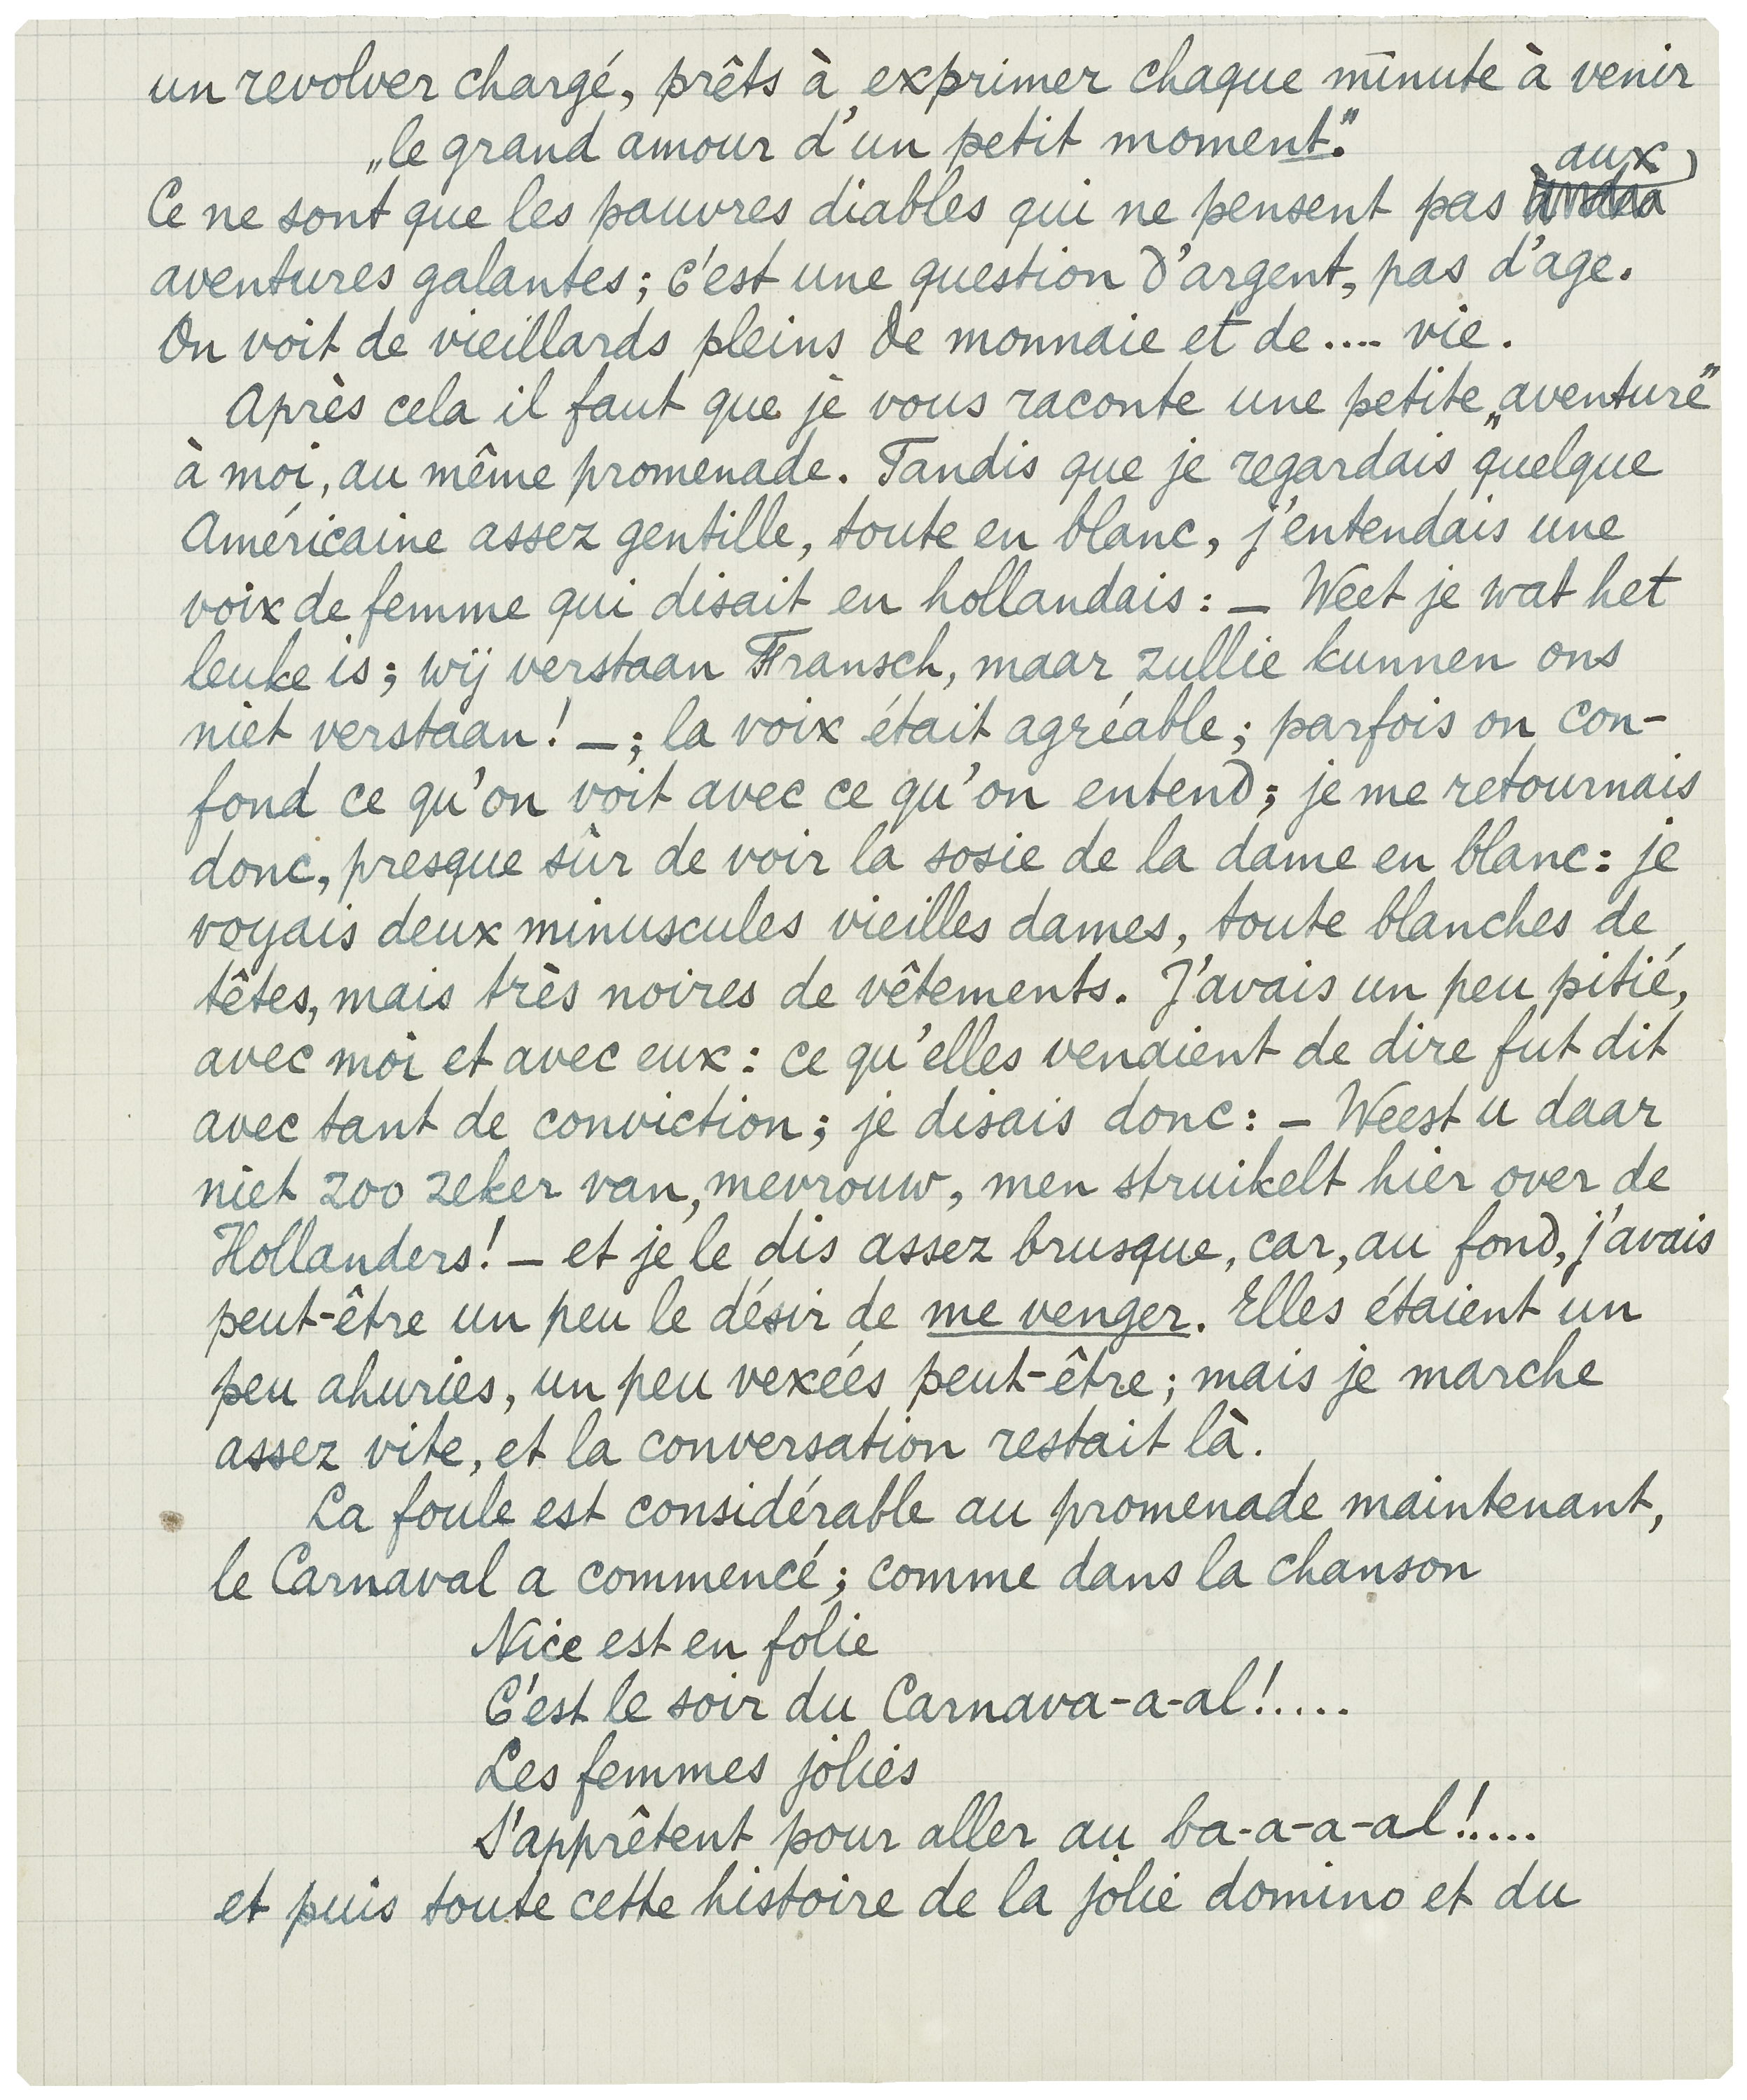 un revolver chargé, prêts à exprimer chaque minute à venir
„le grand amour d'un petit moment."
Ce ne sont que les pauvres diables qui ne pensent pas aux
aventures galantes; c'est une question d'argent, pas d'age.
On voit de vieillards pleins de monnaie et de.... vie.
Après cela il faut que je vous raconte une petite „aventure"
à moi, au même promenade. Tandis que je regardais quelque
Américaine assez gentille, toute en blanc, j'entendais une
voix de femme qui disait en hollandais: — Weet je wat het
leuke is; wij verstaan Fransch, maar zullie kunnen ons
niet verstaan! —; la voix était agréable; parfois on con-
fond ce qu'on voit avec ce qu'on entend; je me retournais
donc, presque sûr de voir la sosie de la dame en blanc: je
voyais deux minuscules vieilles dames, toute blanches de
têtes, mais très noires de vêtements. J'avais un peu pitié,
avec moi et avec eux: ce qu'elles venaient de dire fut dit
avec tant de conviction; je disais donc: — Weest u daar
niet zoo zeker van, mevrouw, men struikelt hier over de
Hollanders! — et je le dis assez brusque, car, au fond, j'avais
peut-être un peu le désir de me venger. Elles étaient un
peu ahuries, un peu vexées peut-être; mais je marche
assez vite, et la conversation restait là.
La foule est considérable au promenade maintenant,
le Carnaval a commencé; comme dans la chanson
Nice est en folie
C'est le soir du Carnava-a-al!.....
Les femmes jolies
S'apprêtent pour aller au ba-a-a-al!....
et puis toute cette histoire de la jolie domino et du